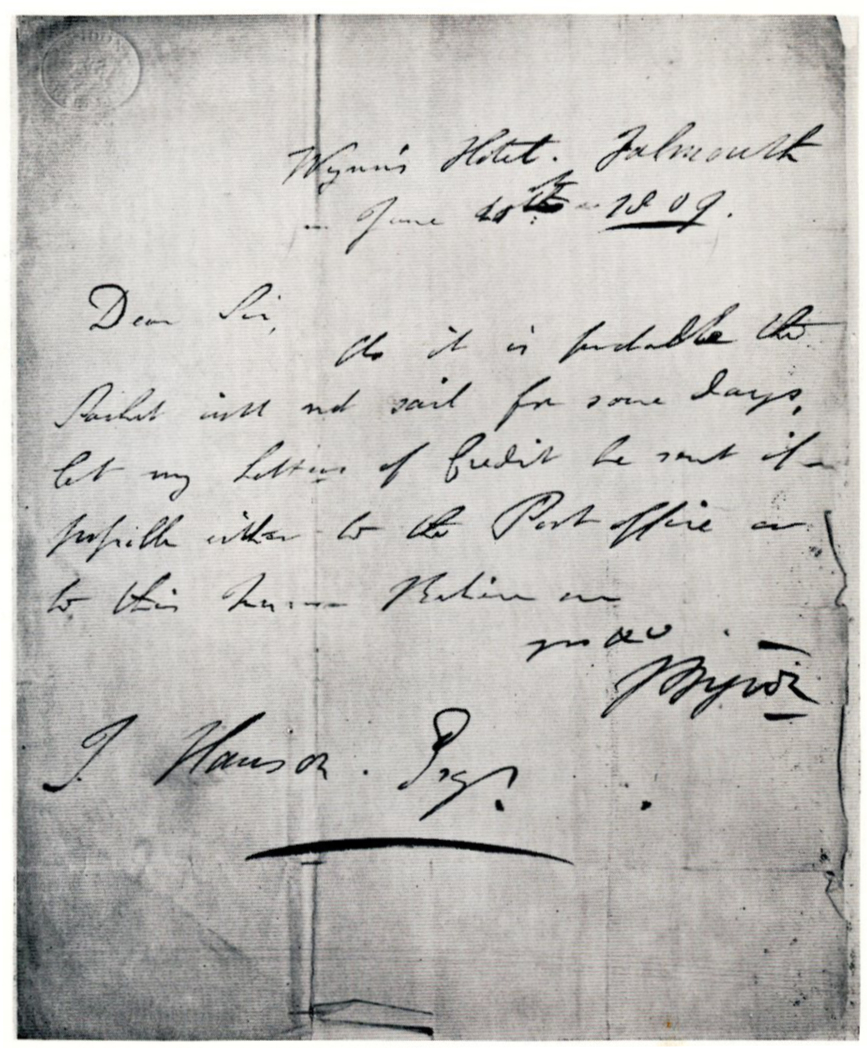 Wynn's Hotel. Falmouth
June 20th 1809.
Dear Sir,
As it is probable the
Packet will not sail for some days,
let my Letters of Credit be sent if
possible either to the Post office or
to this house Believe me
yrs &c
Byron
J. Hanson. Esqr.